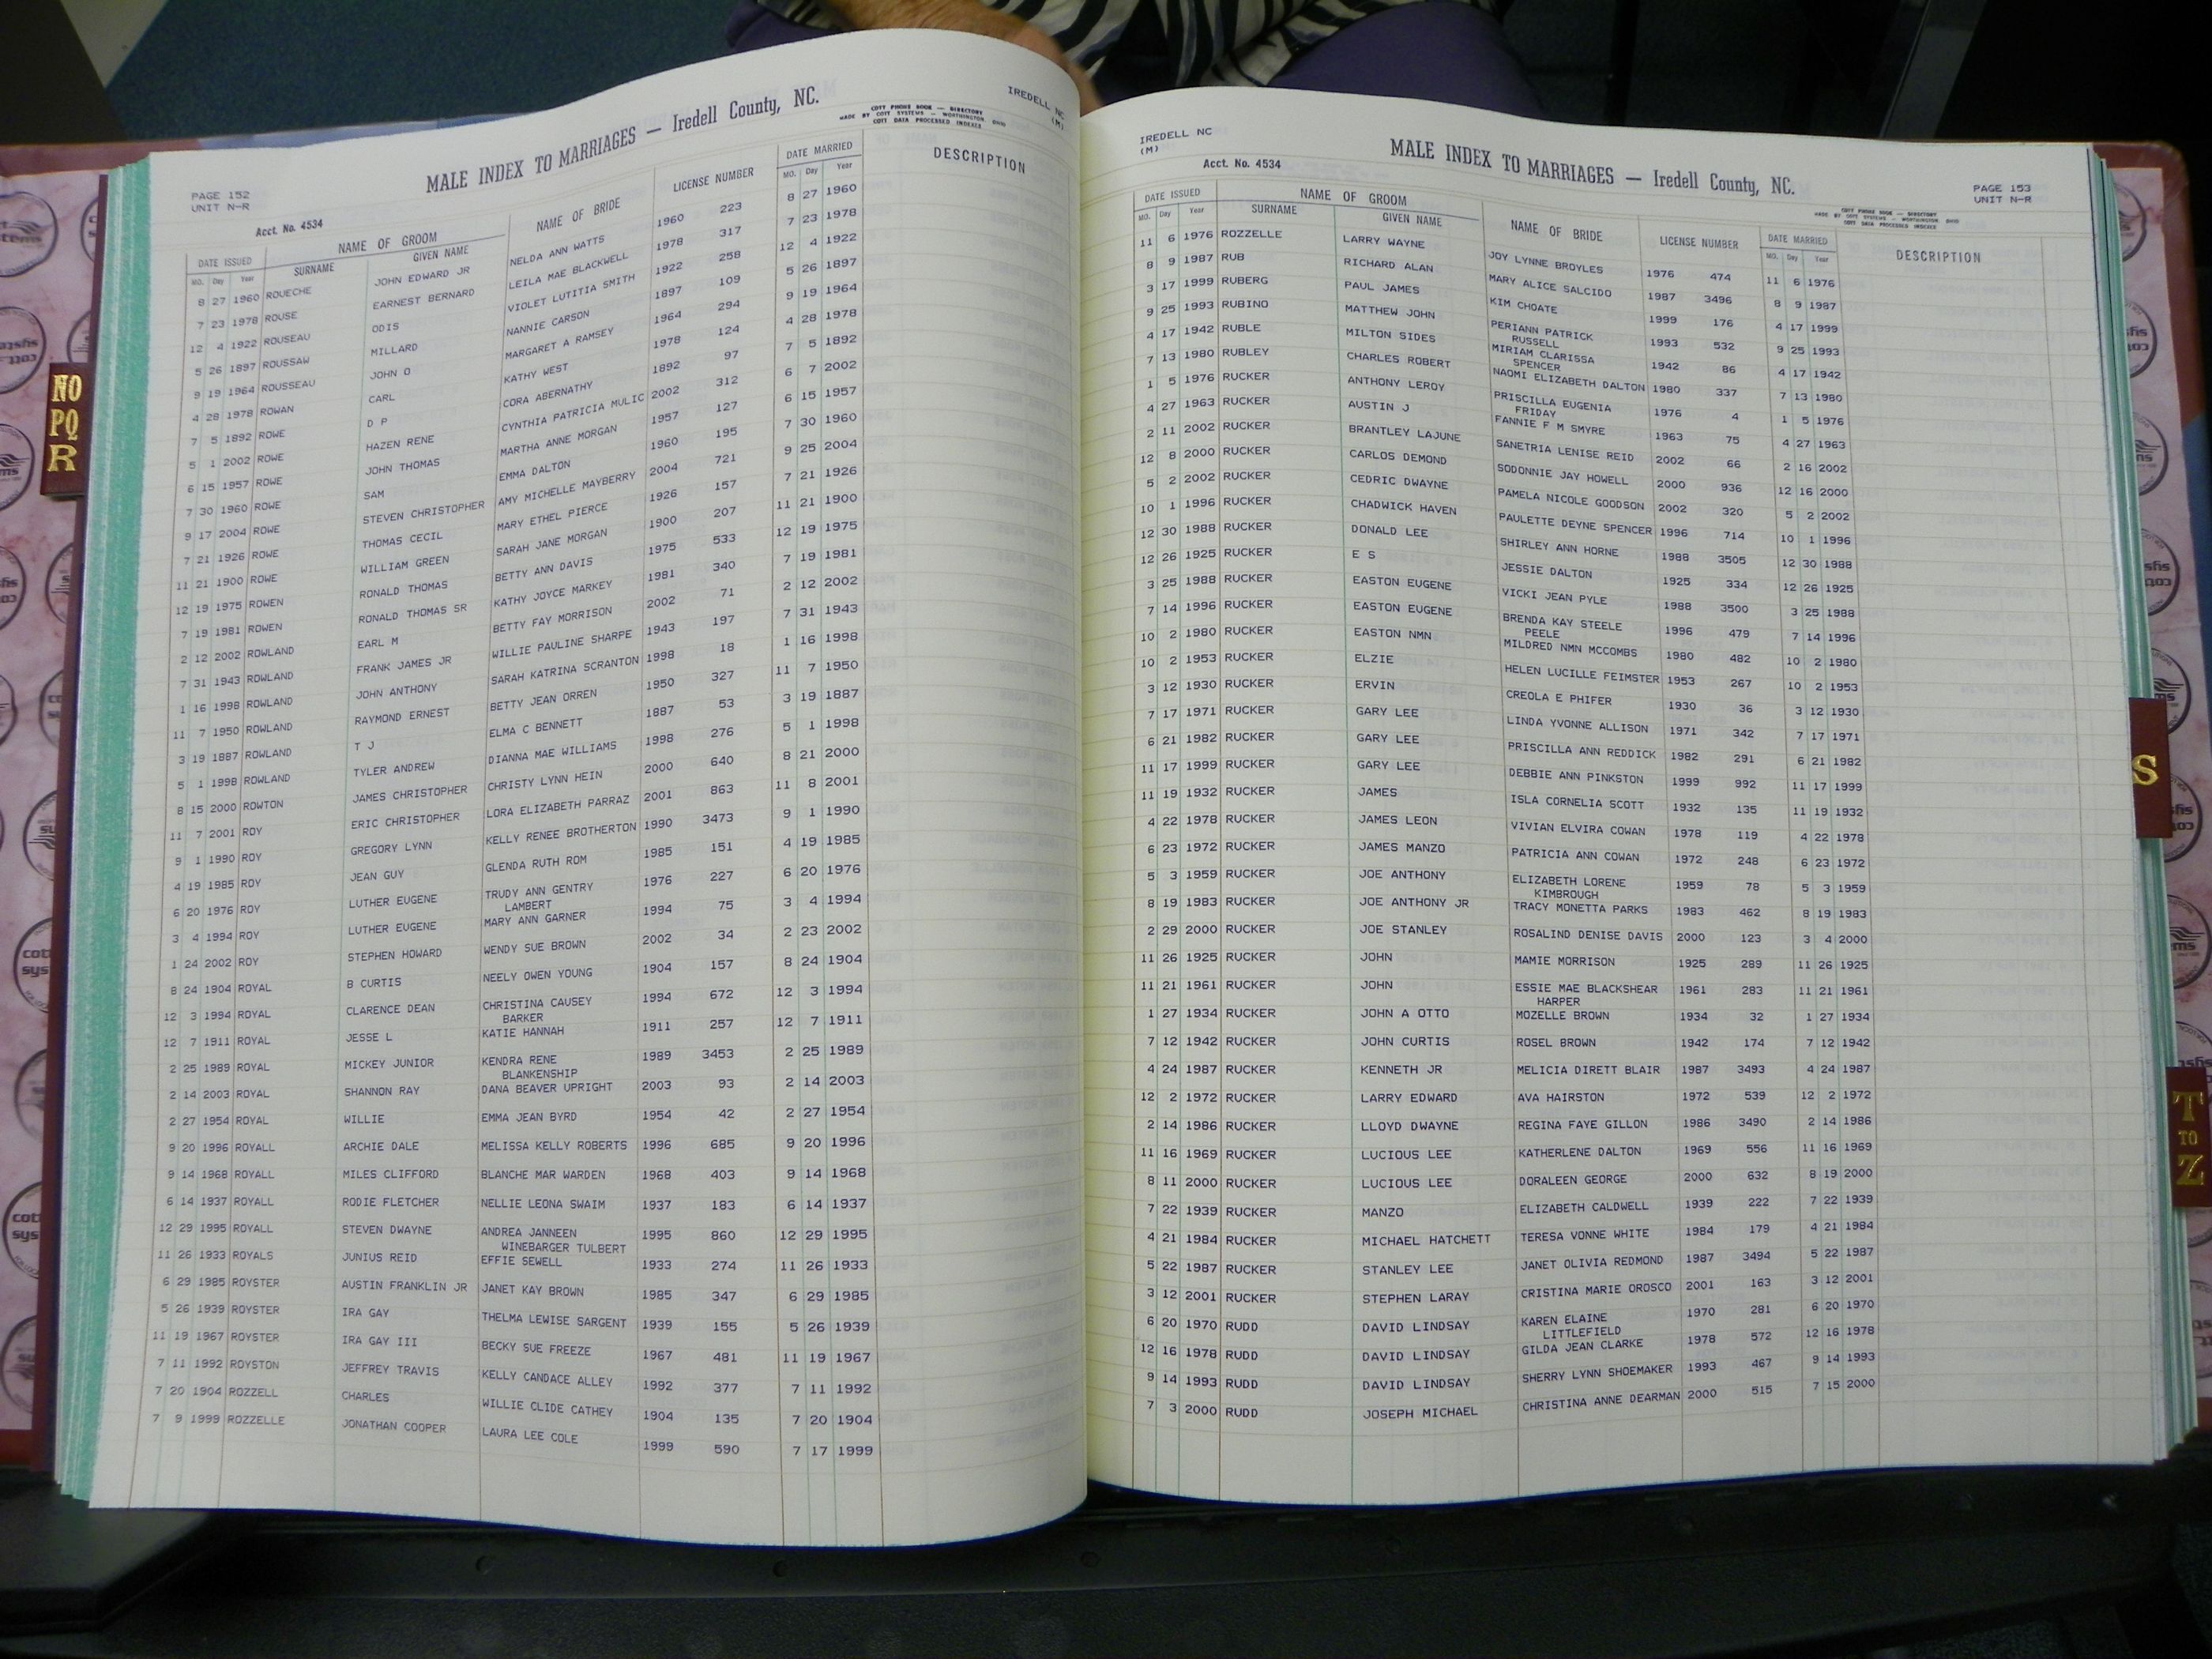 PAGE 152
UNIT N-R
MALE INDEX TO MARRIAGES — Iredell County, NC.
COTT PHONE BOOK — DIRECTORY
MADE BY COTT SYSTEMS — WORTHINGTON OHIO
COTT DATA PROCESSED INDEXES
IREDELL NC
(M)
Acct. No. 4534
DATE ISSUED NAME OF GROOM NAME OF BRIDE LICENSE NUMBER DATE MARRIED DESCRIPTION
MO. Day Year SURNAME GIVEN NAME MO. Day Year
8 27 1960 ROUECHE JOHN EDWARD JR NELDA ANN WATTS 1960 223 8 27 1960
7 23 1978 ROUSE EARNEST BERNARD LEILA MAE BLACKWELL 1978 317 7 23 1978
12 4 1922 ROUSEAU ODIS VIOLET LUTITIA SMITH 1922 258 12 4 1922
5 26 1897 ROUSSAW MILLARD NANNIE CARSON 1897 109 5 26 1897
9 19 1964 ROUSSEAU JOHN O MARGARET A RAMSEY 1964 294 9 19 1964
4 28 1978 ROWAN CARL KATHY WEST 1978 124 4 28 1978
7 5 1892 ROWE D P CORA ABERNATHY 1892 97 7 5 1892
5 1 2002 ROWE HAZEN RENE CYNTHIA PATRICIA MULIC 2002 312 6 7 2002
6 15 1957 ROWE JOHN THOMAS MARTHA ANNE MORGAN 1957 127 6 15 1957
7 30 1960 ROWE SAM EMMA DALTON 1960 195 7 30 1960
9 17 2004 ROWE STEVEN CHRISTOPHER AMY MICHELLE MAYBERRY 2004 721 9 25 2004
7 21 1926 ROWE THOMAS CECIL MARY ETHEL PIERCE 1926 157 7 21 1926
11 21 1900 ROWE WILLIAM GREEN SARAH JANE MORGAN 1900 207 11 21 1900
12 19 1975 ROWEN RONALD THOMAS BETTY ANN DAVIS 1975 533 12 19 1975
7 19 1981 ROWEN RONALD THOMAS SR KATHY JOYCE MARKEY 1981 340 7 19 1981
2 12 2002 ROWLAND EARL M BETTY FAY MORRISON 2002 71 2 12 2002
7 31 1943 ROWLAND FRANK JAMES JR WILLIE PAULINE SHARPE 1943 197 7 31 1943
1 16 1998 ROWLAND JOHN ANTHONY SARAH KATRINA SCRANTON 1998 18 1 16 1998
11 7 1950 ROWLAND RAYMOND ERNEST BETTY JEAN ORREN 1950 327 11 7 1950
3 19 1887 ROWLAND T J ELMA C BENNETT 1887 53 3 19 1887
5 1 1998 ROWLAND TYLER ANDREW DIANNA MAE WILLIAMS 1998 276 5 1 1998
8 15 2000 ROWTON JAMES CHRISTOPHER CHRISTY LYNN HEIN 2000 640 8 21 2000
11 7 2001 ROY ERIC CHRISTOPHER LORA ELIZABETH PARRAZ 2001 863 11 8 2001
9 1 1990 ROY GREGORY LYNN KELLY RENEE BROTHERTON 1990 3473 9 1 1990
4 19 1985 ROY JEAN GUY GLENDA RUTH ROM 1985 151 4 19 1985
6 20 1976 ROY LUTHER EUGENE TRUDY ANN GENTRY 1976 227 6 20 1976
LAMBERT
3 4 1994 ROY LUTHER EUGENE MARY ANN GARNER 1994 75 3 4 1994
1 24 2002 ROY STEPHEN HOWARD WENDY SUE BROWN 2002 34 2 23 2002
8 24 1904 ROYAL B CURTIS NEELY OWEN YOUNG 1904 157 8 24 1904
12 3 1994 ROYAL CLARENCE DEAN CHRISTINA CAUSEY 1994 672 12 3 1994
BARKER
12 7 1911 ROYAL JESSE L KATIE HANNAH 1911 257 12 7 1911
2 25 1989 ROYAL MICKEY JUNIOR KENDRA RENE 1989 3453 2 25 1989
BLANKENSHIP
2 14 2003 ROYAL SHANNON RAY DANA BEAVER UPRIGHT 2003 93 2 14 2003
2 27 1954 ROYAL WILLIE EMMA JEAN BYRD 1954 42 2 27 1954
9 20 1996 ROYALL ARCHIE DALE MELISSA KELLY ROBERTS 1996 685 9 20 1996
9 14 1968 ROYALL MILES CLIFFORD BLANCHE MAR WARDEN 1968 403 9 14 1968
6 14 1937 ROYALL RODIE FLETCHER NELLIE LEONA SWAIM 1937 183 6 14 1937
12 29 1995 ROYALL STEVEN DWAYNE ANDREA JANNEEN 1995 860 12 29 1995
WINEBARGER TULBERT
11 26 1933 ROYALS JUNIUS REID EFFIE SEWELL 1933 274 11 26 1933
6 29 1985 ROYSTER AUSTIN FRANKLIN JR JANET KAY BROWN 1985 347 6 29 1985
5 26 1939 ROYSTER IRA GAY THELMA LEWISE SARGENT 1939 155 5 26 1939
11 19 1967 ROYSTER IRA GAY III BECKY SUE FREEZE 1967 481 11 19 1967
7 11 1992 ROYSTON JEFFREY TRAVIS KELLY CANDACE ALLEY 1992 377 7 11 1992
7 20 1904 ROZZELL CHARLES WILLIE CLIDE CATHEY 1904 135 7 20 1904
7 9 1999 ROZZELLE JONATHAN COOPER LAURA LEE COLE 1999 590 7 17 1999
IREDELL NC
(M)
Acct. No. 4534
MALE INDEX TO MARRIAGES — Iredell County, NC.
PAGE 153
UNIT N-R
COTT PHONE BOOK — DIRECTORY
MADE BY COTT SYSTEMS — WORTHINGTON OHIO
COTT DATA PROCESSED INDEXES
DATE ISSUED NAME OF GROOM NAME OF BRIDE LICENSE NUMBER DATE MARRIED DESCRIPTION
MO. Day Year SURNAME GIVEN NAME MO. Day Year
11 6 1976 ROZZELLE LARRY WAYNE JOY LYNNE BROYLES 1976 474 11 6 1976
8 9 1987 RUB RICHARD ALAN MARY ALICE SALCIDO 1987 3496 8 9 1987
3 17 1999 RUBERG PAUL JAMES KIM CHOATE 1999 176 4 17 1999
9 25 1993 RUBINO MATTHEW JOHN PERIANN PATRICK 1993 532 9 25 1993
RUSSELL
4 17 1942 RUBLE MILTON SIDES MIRIAM CLARISSA 1942 86 4 17 1942
SPENCER
7 13 1980 RUBLEY CHARLES ROBERT NAOMI ELIZABETH DALTON 1980 337 7 13 1980
1 5 1976 RUCKER ANTHONY LEROY PRISCILLA EUGENIA 1976 4 1 5 1976
FRIDAY
4 27 1963 RUCKER AUSTIN J FANNIE F M SMYRE 1963 75 4 27 1963
2 11 2002 RUCKER BRANTLEY LAJUNE SANETRIA LENISE REID 2002 66 2 16 2002
12 8 2000 RUCKER CARLOS DEMOND SODONNIE JAY HOWELL 2000 936 12 16 2000
5 2 2002 RUCKER CEDRIC DWAYNE PAMELA NICOLE GOODSON 2002 320 5 2 2002
10 1 1996 RUCKER CHADWICK HAVEN PAULETTE DEYNE SPENCER 1996 714 10 1 1996
12 30 1988 RUCKER DONALD LEE SHIRLEY ANN HORNE 1988 3505 12 30 1988
12 26 1925 RUCKER E S JESSIE DALTON 1925 334 12 26 1925
3 25 1988 RUCKER EASTON EUGENE VICKI JEAN PYLE 1988 3500 3 25 1988
7 14 1996 RUCKER EASTON EUGENE BRENDA KAY STEELE 1996 479 7 14 1996
PEELE
10 2 1980 RUCKER EASTON NMN MILDRED NMN MCCOMBS 1980 482 10 2 1980
10 2 1953 RUCKER ELZIE HELEN LUCILLE FEIMSTER 1953 267 10 2 1953
3 12 1930 RUCKER ERVIN CREOLA E PHIFER 1930 36 3 12 1930
7 17 1971 RUCKER GARY LEE LINDA YVONNE ALLISON 1971 342 7 17 1971
6 21 1982 RUCKER GARY LEE PRISCILLA ANN REDDICK 1982 291 6 21 1982
11 17 1999 RUCKER GARY LEE DEBBIE ANN PINKSTON 1999 992 11 17 1999
11 19 1932 RUCKER JAMES ISLA CORNELIA SCOTT 1932 135 11 19 1932
4 22 1978 RUCKER JAMES LEON VIVIAN ELVIRA COWAN 1978 119 4 22 1978
6 23 1972 RUCKER JAMES MANZO PATRICIA ANN COWAN 1972 248 6 23 1972
5 3 1959 RUCKER JOE ANTHONY ELIZABETH LORENE 1959 78 5 3 1959
KIMBROUGH
8 19 1983 RUCKER JOE ANTHONY JR TRACY MONETTA PARKS 1983 462 8 19 1983
2 29 2000 RUCKER JOE STANLEY ROSALIND DENISE DAVIS 2000 123 3 4 2000
11 26 1925 RUCKER JOHN MAMIE MORRISON 1925 289 11 26 1925
11 21 1961 RUCKER JOHN ESSIE MAE BLACKSHEAR 1961 283 11 21 1961
HARPER
1 27 1934 RUCKER JOHN A OTTO MOZELLE BROWN 1934 32 1 27 1934
7 12 1942 RUCKER JOHN CURTIS ROSEL BROWN 1942 174 7 12 1942
4 24 1987 RUCKER KENNETH JR MELICIA DIRETT BLAIR 1987 3493 4 24 1987
12 2 1972 RUCKER LARRY EDWARD AVA HAIRSTON 1972 539 12 2 1972
2 14 1986 RUCKER LLOYD DWAYNE REGINA FAYE GILLON 1986 3490 2 14 1986
11 16 1969 RUCKER LUCIOUS LEE KATHERLENE DALTON 1969 556 11 16 1969
8 11 2000 RUCKER LUCIOUS LEE DORALEEN GEORGE 2000 632 8 19 2000
7 22 1939 RUCKER MANZO ELIZABETH CALDWELL 1939 222 7 22 1939
4 21 1984 RUCKER MICHAEL HATCHETT TERESA VONNE WHITE 1984 179 4 21 1984
5 22 1987 RUCKER STANLEY LEE JANET OLIVIA REDMOND 1987 3494 5 22 1987
3 12 2001 RUCKER STEPHEN LARAY CRISTINA MARIE OROSCO 2001 163 3 12 2001
6 20 1970 RUDD DAVID LINDSAY KAREN ELAINE 1970 281 6 20 1970
LITTLEFIELD
12 16 1978 RUDD DAVID LINDSAY GILDA JEAN CLARKE 1978 572 12 16 1978
9 14 1993 RUDD DAVID LINDSAY SHERRY LYNN SHOEMAKER 1993 467 9 14 1993
7 3 2000 RUDD JOSEPH MICHAEL CHRISTINA ANNE DEARMAN 2000 515 7 15 2000
NO
PQ
R
S
T
TO
Z